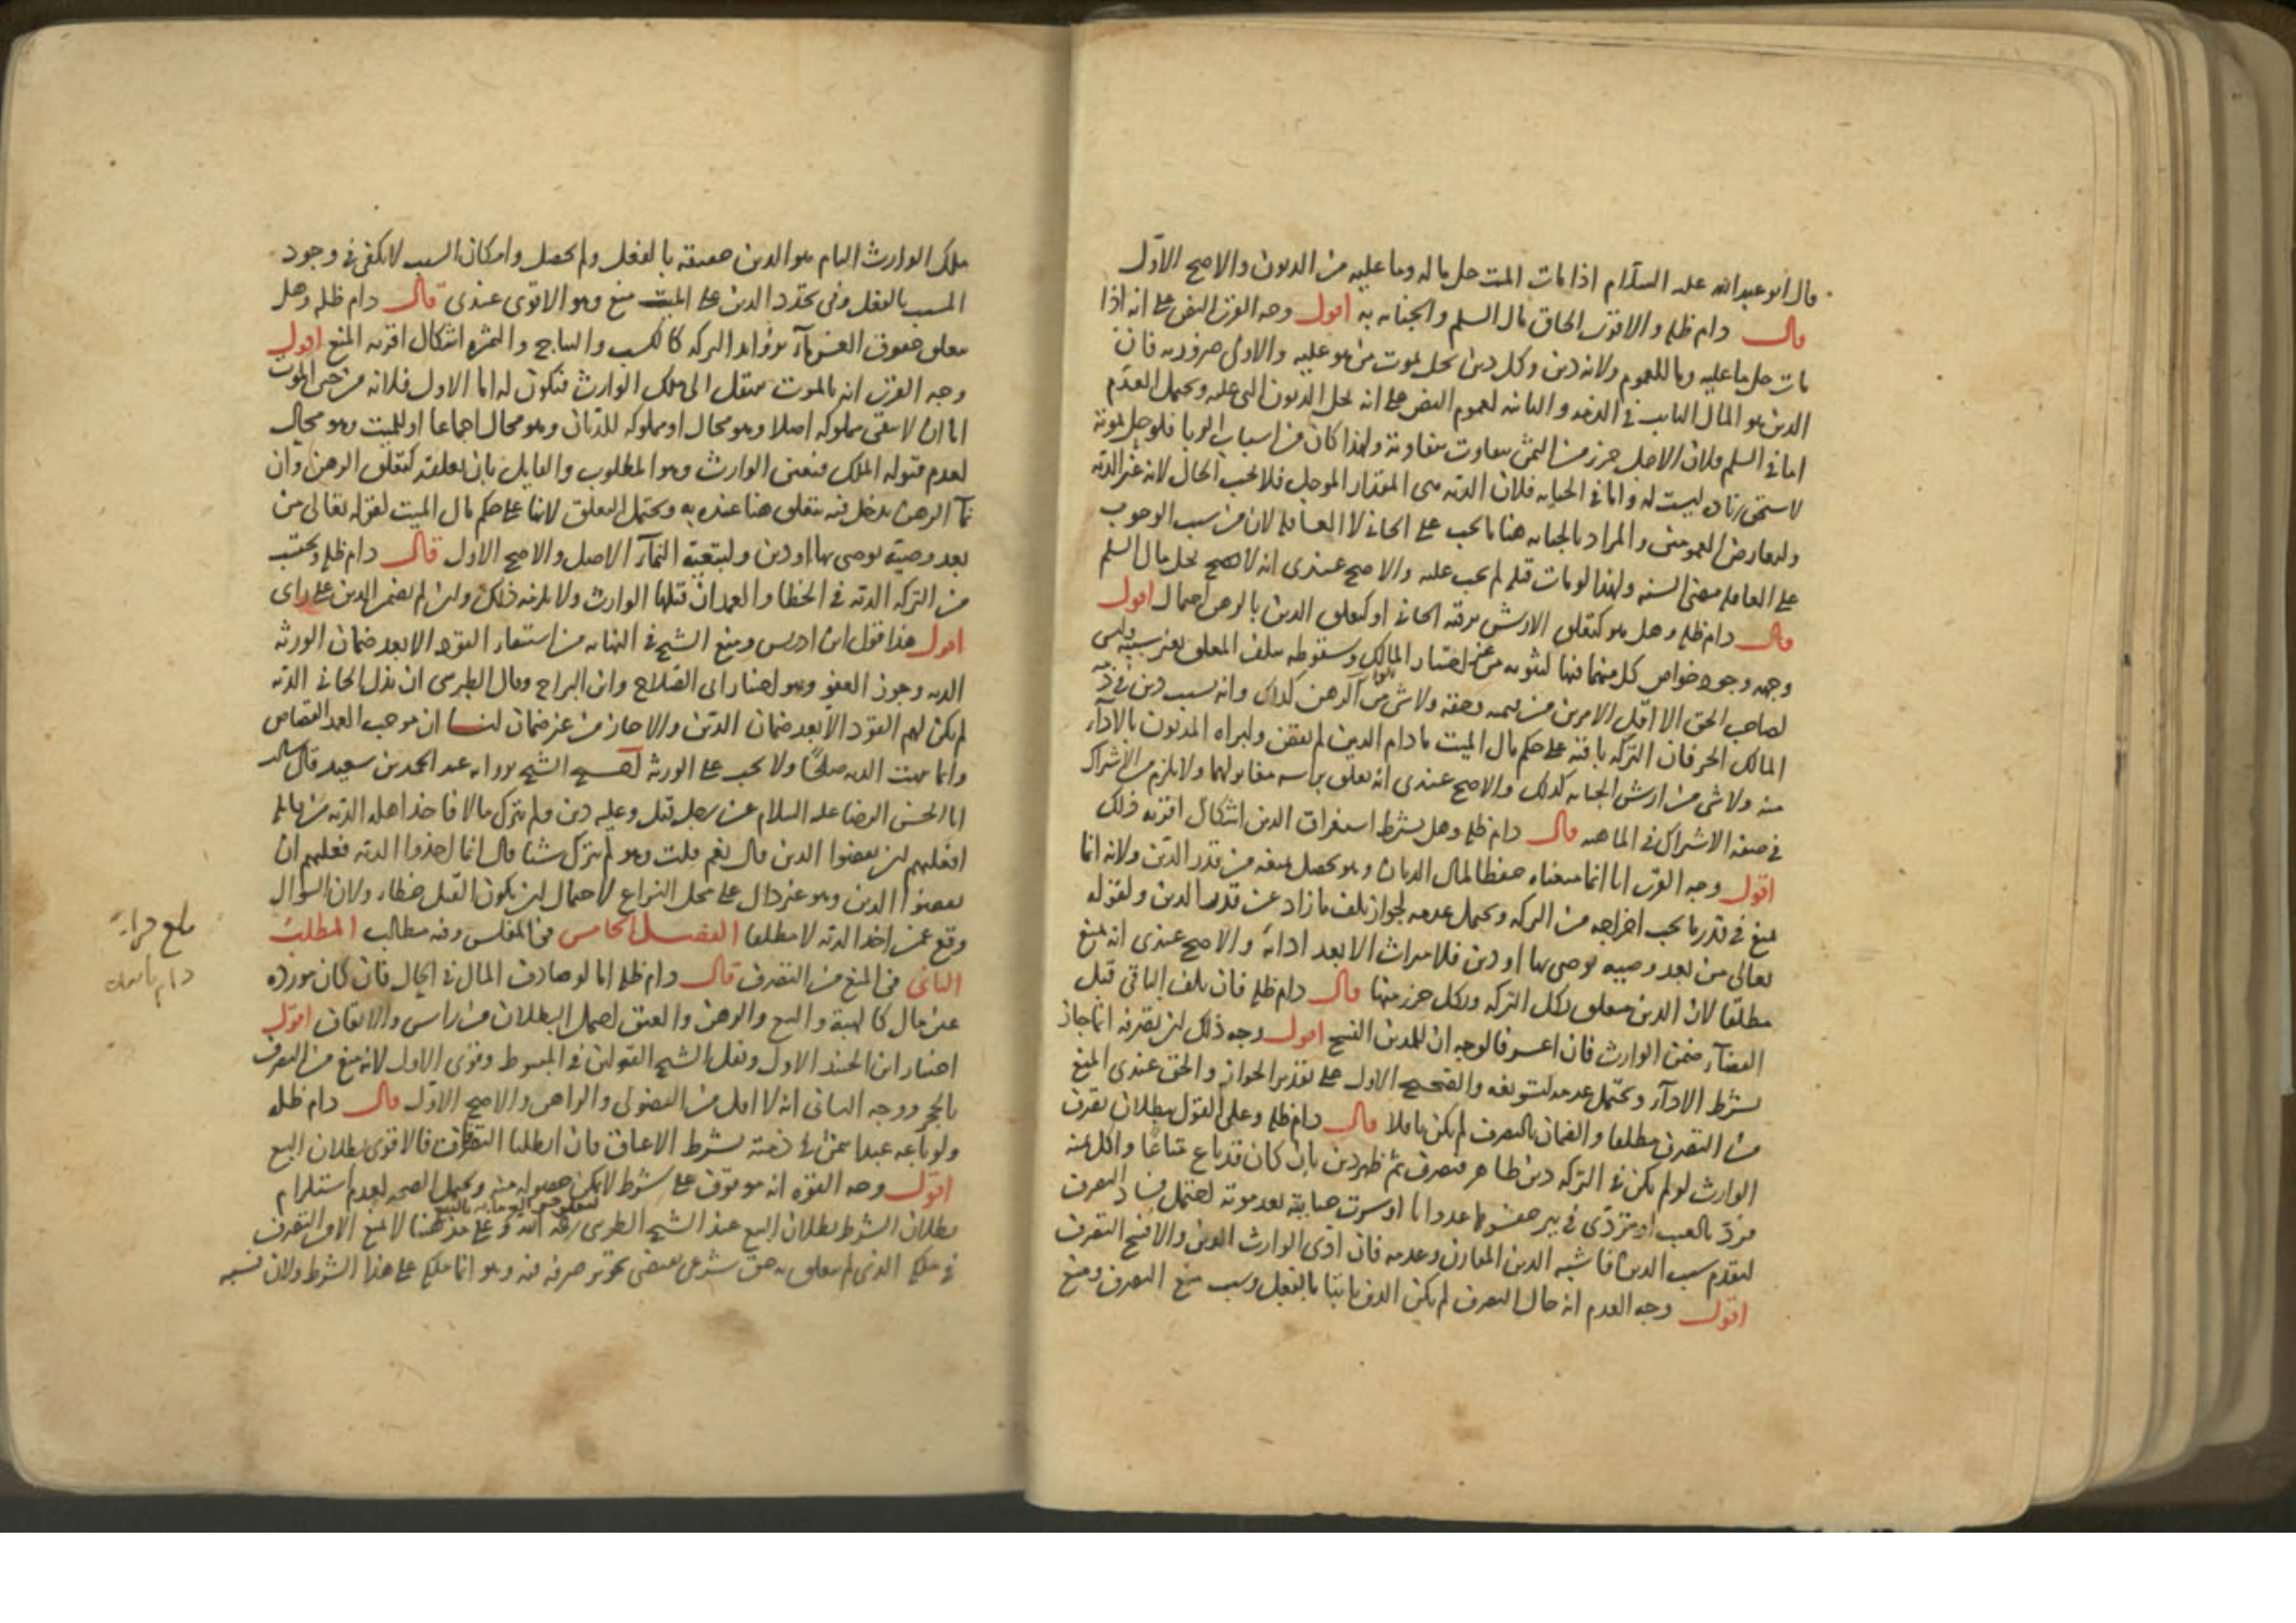 قال ابو عبد الله عليه السلام اذا مات الميت حل ما له وما عليه من الديون والاصح الاول
قال دام ظله والاقرب الحاق مال السلم والجناية به اقول وجه القرب النص على انه اذا
مات حل ما عليه وما للعموم ولانه دين وكل دين يحل بموت من هو عليه والاولى ضرورية فان
الدين هو المال الثابت في الذمة والثانية لعموم النص على انه يحل الديون التي عليه ويحتمل العدم
اما في السلم فلان الاجل جزء من الثمن يتفاوت بتفاوته ولهذا كان من اسباب الربا فلو حل بموته
لاستحق زيادة ليست له واما في الجناية فلان الدية هي المقدار المؤجل فلا يجب الحال لانه غير الدية
ولتعارض العمومين والمراد بالجناية هنا ما يجب على الجاني لا العاقلة لان من سبب الوجوب
على العاقلة مضى السنة ولهذا لو مات قبله لم يجب عليه والاصح عندي انه لا يصح يحل مال السلم
قال دام ظله وهل هو كتعلق الارش برقبة الجاني او كتعلق الدين بالرهن احتمال اقول
وجهه وجود خواص كل منهما فيها لثبوته من غير اختيار المالك وسقوطه بتلف المتعلق بغير سببه وليس
لصاحب الحق الا اقل الامرين من قيمته وحقه ولا شي من الرهن كذلك وانه بسبب دين في ذمة
المالك الحر فان التركة باقية على حكم مال الميت ما دام الدين لم يقض ولبراة المديون بالاداء
منه ولا شي من ارش الجناية كذلك والاصح عندي انه تعلق براسه مغاير لهما ولا يلزم من الاشتراك
في صفة الاشتراك في الماهية قال دام ظله وهل يشترط استغراق الدين اشكال اقربه ذلك
اقول وجه القرب انا انما منعناه حفظا لمال الديان وهو يحصل بمنعه من قدر الدين ولانه انما
يمنع في قدر ما يجب اخراجه من التركة ويحتمل عدمه لجواز تلف ما زاد عن قدر الدين ولقوله
تعالى من بعد وصية يوصى بها او دين فلا ميراث الا بعد ادائه والاصح عندي انه يمنع
مطلقا لان الدين متعلق بكل التركة وبكل جزء منها قال دام ظله فان تلف الباقي قبل
القضاء ضمن الوارث فان اعسر فالوجه ان للمدين الفسخ اقول وجه ذلك ان تصرفه انما جاز
بشرط الاداء ويحتمل عدمه لتسويغه والصحيح الاول على تقدير الجواز والحق عندي المنع
من التصرف مطلقا والضمان بالتصرف لم يكن باطلا قال دام ظله وعلى القول ببطلان تصرف
الوارث لو لم يكن في التركة دين ظاهر فتصرف ثم ظهر دين بان كان قد باع متاعا واكل ثمنه
فرد بالعيب او تردى في بير حفرها عدوانا او سرت جناية بعد موته احتمل فساد التصرف
لتقدم سبب الدين فاشبه الدين المقارن وعدمه فان ادى الوارث الدين والا فسخ التصرف
اقول وجه العدم انه حال التصرف لم يكن الدين ثابتا بالفعل وسبب منع التصرف ومنع
ملك الوارث التام هو الدين حقيقة بالفعل ولم يحصل وامكان السبب لا يكفي في وجود
المسبب بالفعل وفي تجدد الدين على الميت منع وهو الاقوى عندي قال دام ظله وهل
يتعلق حقوق الغرماء بزوايد التركة كالكسب والنتاج والثمرة اشكال اقربه المنع اقول
وجه القرب انه بالموت ينتقل الى ملك الوارث فتكون له اما الاول فلانه من حين الموت
اما ان لا يبقى مملوكه اصلا وهو محال او مملوكه للديان وهو محال اجماعا او للميت وهو محال
لعدم قبوله الملك فتعين الوارث وهو المطلوب والقايل بان تعلقه كتعلق الرهن وان
نماء الرهن يدخل فيه يتعلق هنا عنده به ويحتمل التعلق لانها على حكم مال الميت لقوله تعالى من
بعد وصية يوصى بها او دين ولتبعية النماء الاصل والاصح الاول قال دام ظله ويحتسب
من التركة الدية في الخطا والعمد ان قبلها الوارث ولا يلزمه ذلك وان لم يضمن الدين على راى
اقول هذا قول ابن ادريس ومنع الشيخ في النهاية من استيفاء القود الا بعد ضمان الورثة
الدية وجوز العفو وهو اختيار ابي الصلاح وابن البراج وقال الطبرسي ان بذل الجاني الدية
لم يكن لهم القود الا بعد ضمان الدين والا جاز من غير ضمان لنا ان موجب العمد القصاص
وانما يثبت الدية صلحا ولا يجب على الورثة احتج الشيخ برواية عبد الحميد بن سعيد قال سالت
ابا الحسن الرضا عليه السلام عن رجل قتل وعليه دين ولم يترك مالا فاخذ اهله الدية من قاتله
افعليهم ان يقضوا الدين قال نعم قلت وهو لم يترك شيئا قال انما اخذوا الدية فعليهم ان
يقضوا الدين وهو غير دال على محل النزاع لاحتمال ان يكون القتل خطاء ولان السوال
وقع عمن اخذ الدية لا مطلقا الفصل الخامس في المفلس وفيه مطالب المطلب
الثاني في المنع من التصرف قال دام ظله اما لو صادف المال في الحال فان كان مورده
عين مال كالهبة والبيع والرهن والعتق احتمل البطلان من راس والايقاف اقول
اختار ابن الجنيد الاول ونقل الشيخ القولين في المبسوط وقوى الاول لانه منع من التصرف
بالحجر ووجه الثاني انه لا اقل من الفضولي والراهن والاصح الاول قال دام ظله
ولو باعه عبدا بثمن في ذمته بشرط الاعتاق فان ابطلنا التصرفات فالاقوى بطلان البيع
اقول وجه القوة انه موقوف على شرط لا يمكن حصوله منه ويحتمل الصحة لعدم استلزام
بطلان الشرط بطلان البيع عند الشيخ الطوسي رحمه الله وعلى مذهبنا لا يمنع الا من التصرف
في ملكه الذي لم يتعلق به حق شرعي يقتضي تجويز صرفه فيه وهو انما ملكه على هذا الشرط ولان نسبة
بلغ قراءة
دام